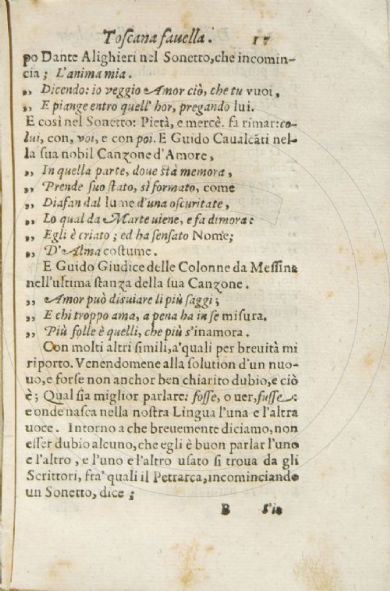 Toscana fauella. 17
po Dante Alighieri nel Sonetto, che incomin-
cia; L'anima mia.
„ Dicendo: io veggio Amor ciò, che tu vuoi,
„ E piange entro quell'hor, pregando lui.
E così nel Sonetto: Pietà, e mercè. fa rimar: co-
lui, con, voi, e con poi. E Guido Caualcãti nel-
la sua nobil Canzone d'Amore,
„ In quella parte, doue sta memora,
„ Prende suo stato, sì formato, come
„ Diafan dal lume d'una oscuritate,
„ Lo qual da Marte uiene, e fa dimora:
„ Egli è criato; ed ha sensato Nome;
„ D'Alma costume.
E Guido Giudice delle Colonne da Messina
nell'ultima stanza della sua Canzone.
„ Amor può disuiare li più saggi;
„ E chi troppo ama, a pena ha in se misura.
„ Più folle è quelli, che più s'inamora.
Con molti altri simili, a'quali per breuità mi
riporto. Venendomene alla solution d'un nuo-
uo, e forse non anchor ben chiarito dubio, e ciò
è; Qual sia miglior parlare: fosse, o uer, fusse:
e onde nasca nella nostra Lingua l'una e l'altra
uoce. Intorno a che breuemente diciamo, non
esser dubio alcuno, che egli è buon parlar l'uno
e l'altro, e l'uno e l'altro usato si troua da gli
Scrittori, fra' quali il Petrarca, incominciando
un Sonetto, dice;
B S'io